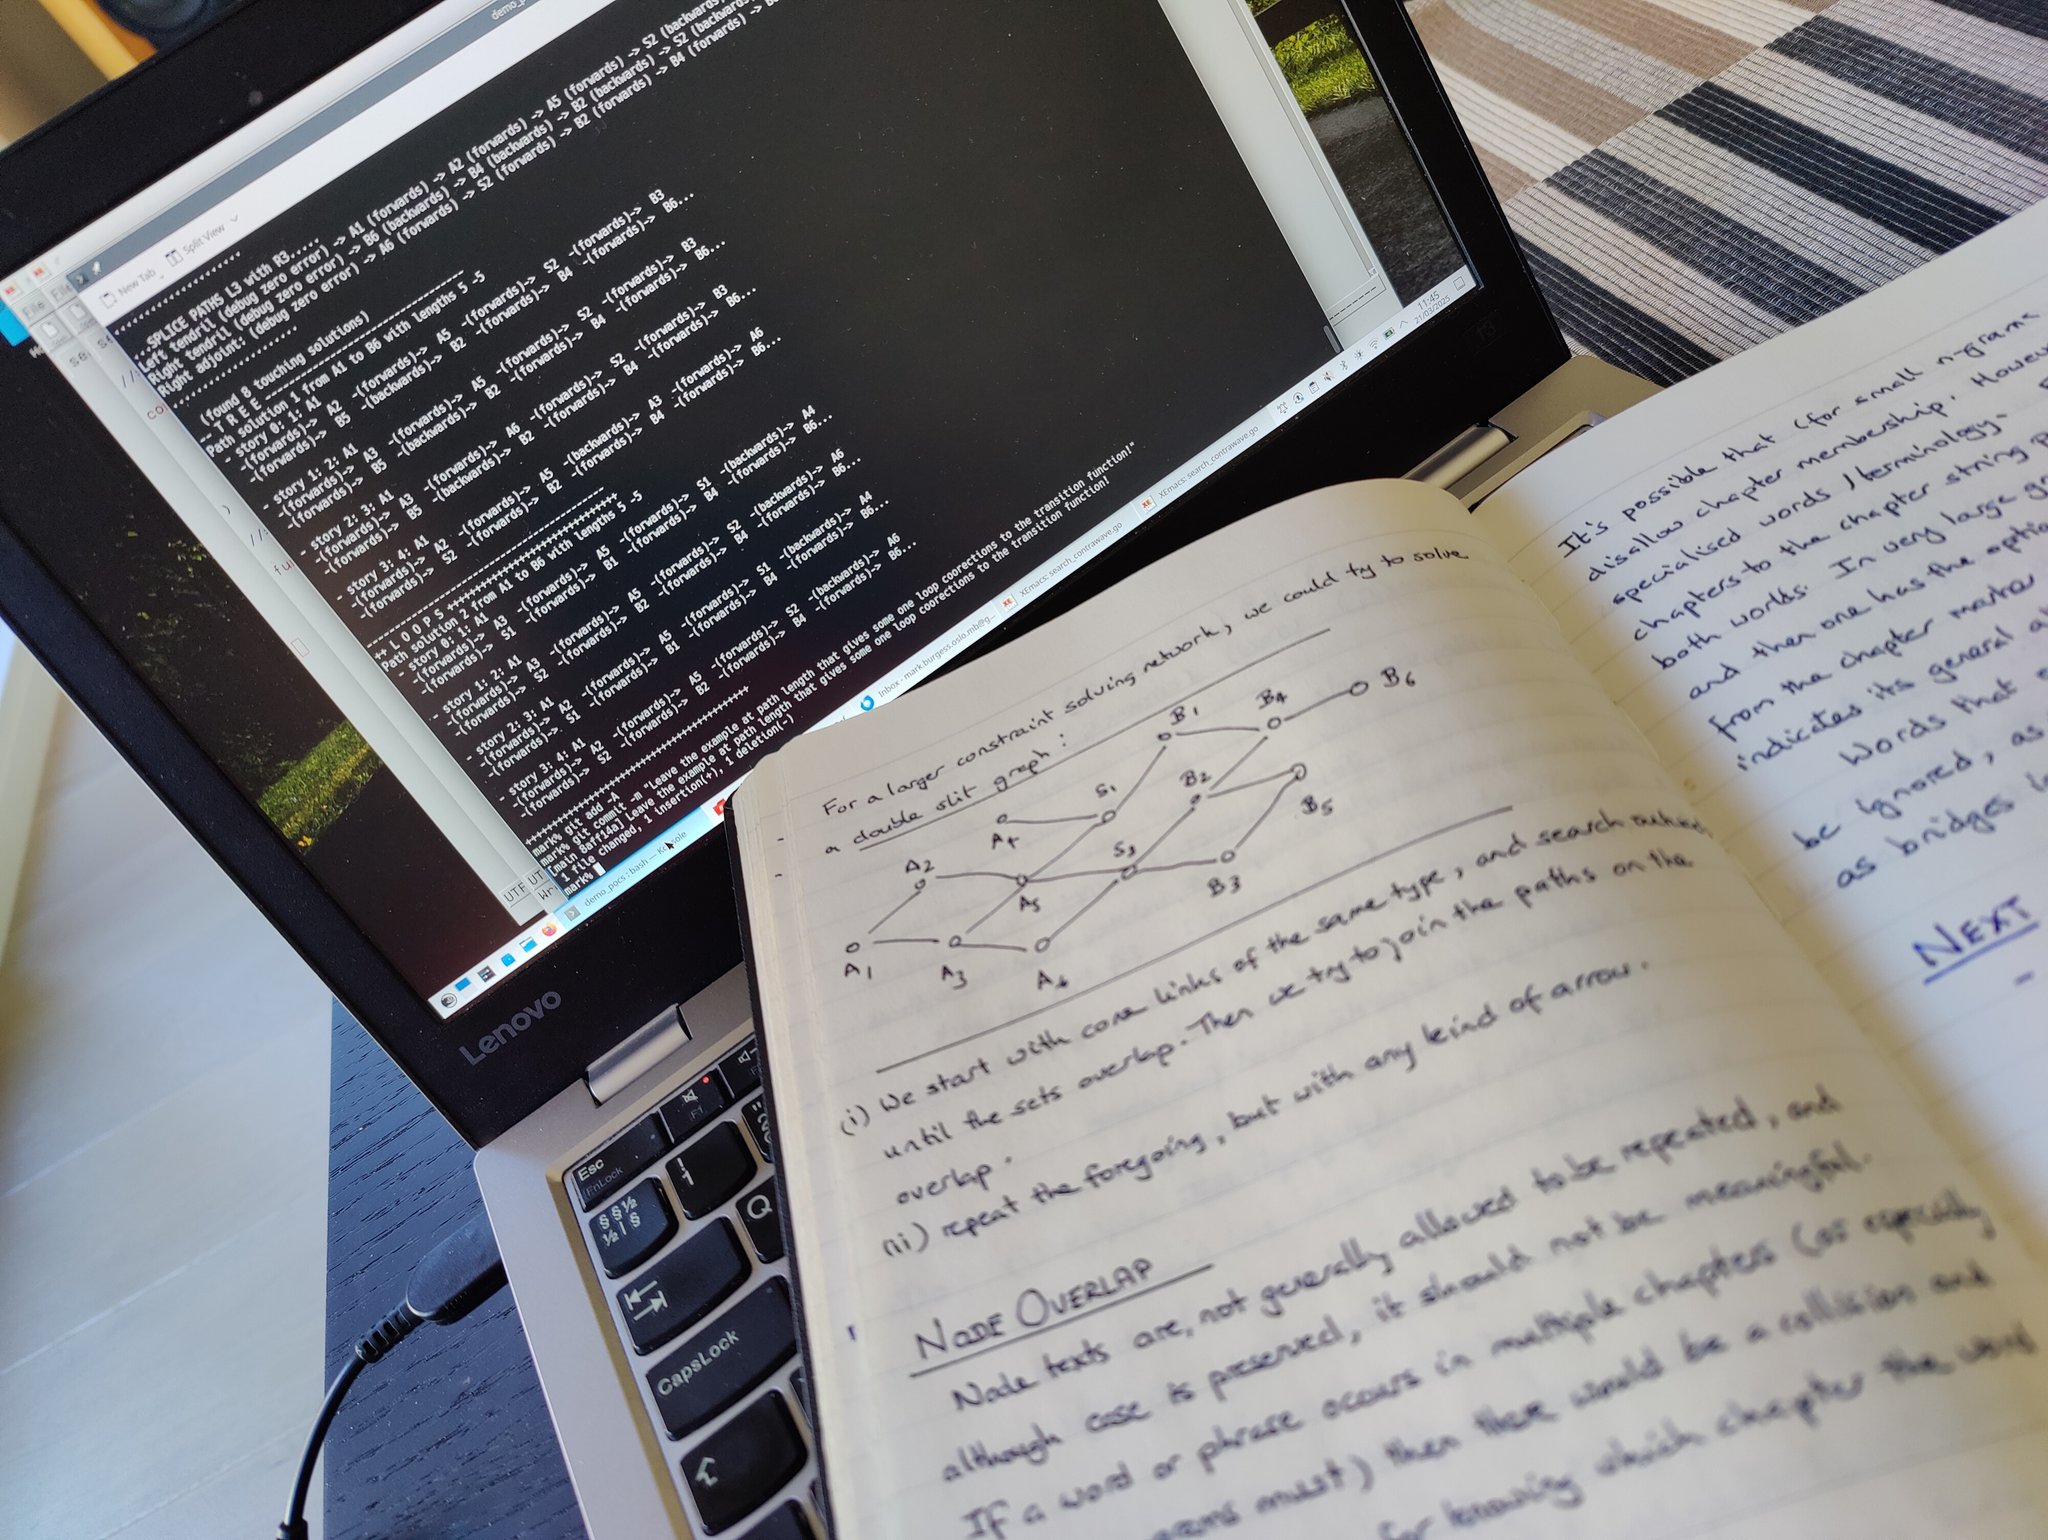 demo_p
New Tab
Split View
File
...SPLICE PATHS L3 with R3.....
Left tendril (debug zero error) -> A1 (forwards) -> A2 (forwards) -> A5 (forwards) -> S2 (backwards)
Right tendril (debug zero error) -> B6 (backwards) -> B4 (backwards) -> B2 (backwards) -> S2 (backwards)
Right adjoint: (debug zero error) -> A6 (forwards) -> S2 (forwards) -> B2 (forwards) -> B4 (forwards)
(found 8 touching solutions)
-- T R E E
Path solution 1 from A1 to B6 with lengths 5 -5
- story 0: 1: A1 -(forwards)-> A2 -(forwards)-> A5 -(forwards)-> S2 -(forwards)-> B3
-(forwards)-> B5 -(backwards)-> B2 -(forwards)-> B4 -(forwards)-> B6...
- story 1: 2: A1
-(forwards)-> A3 -(forwards)-> A5 -(forwards)-> S2 -(forwards)-> B3
-(forwards)-> B5 -(backwards)-> B2 -(forwards)-> B4 -(forwards)-> B6...
- story 2: 3: A1
-(forwards)-> A3 -(forwards)-> A6 -(forwards)-> S2 -(forwards)-> B3
-(forwards)-> B5 -(backwards)-> B2 -(forwards)-> B4 -(forwards)-> B6...
- story 3: 4: A1
-(forwards)-> A2 -(forwards)-> A5 -(backwards)-> A3 -(forwards)-> A6
-(forwards)-> S2 -(forwards)-> B2 -(forwards)-> B4 -(forwards)-> B6...
++ L O O P S +++++++++++++++++++++++++++
Path solution 2 from A1 to B6 with lengths 5 -5
- story 0: 1: A1
-(forwards)-> A3 -(forwards)-> A5 -(forwards)-> S1 -(backwards)-> A4
-(forwards)-> S1 -(forwards)-> B1 -(forwards)-> B4 -(forwards)-> B6...
- story 1: 2: A1
-(forwards)-> A3 -(forwards)-> A5 -(forwards)-> S2 -(backwards)-> A6
-(forwards)-> S2 -(forwards)-> B2 -(forwards)-> B4 -(forwards)-> B6...
- story 2: 3: A1
-(forwards)-> A2 -(forwards)-> A5 -(forwards)-> S1 -(backwards)-> A4
-(forwards)-> S1 -(forwards)-> B1 -(forwards)-> B4 -(forwards)-> B6...
- story 3: 4: A1
-(forwards)-> A2 -(forwards)-> A5 -(forwards)-> S2 -(backwards)-> A6
-(forwards)-> S2 -(forwards)-> B2 -(forwards)-> B4 -(forwards)-> B6...
mark% git add -A
mark% git commit -m "Leave the example at path length that gives some one loop coorections to the transition function!"
[main 8aff14a] Leave the example at path length that gives some one loop coorections to the transition function!
1 file changed, 1 insertion(+), 1 deletion(-)
mark%
demo_pocs : bash — Konsole
Inbox - mark.burgess.oslo.mb@g...
XEmacs: search_contrawave.go
XEmacs: search_contrawave.go
11:45
21/03/2025
Lenovo
Esc
FnLock
F1
Q
CapsLock
For a larger constraint solving network, we could try to solve
a double slit graph:
A1 A2 A3 A4 A5 A6 S1 S2 B1 B2 B3 B4 B5 B6
(i) We start with cone links of the same type, and search outward
until the sets overlap. Then we try to join the paths on the
overlap.
(ii) repeat the foregoing, but with any kind of arrow.
NODE OVERLAP
Node texts are, not generally allowed to be repeated, and
although case is preserved, it should not be meaningful.
If a word or phrase occurs in multiple chapters (as especially
must) then there would be a collision and
for knowing which chapter the word
It's possible that (for small n-grams
disallow chapter membership. However
specialised words / terminology
chapters to the chapter string
both worlds. In very large
and then one has the option
from the chapter master
indicates its general
Words that
be ignored, as
as bridges
NEXT